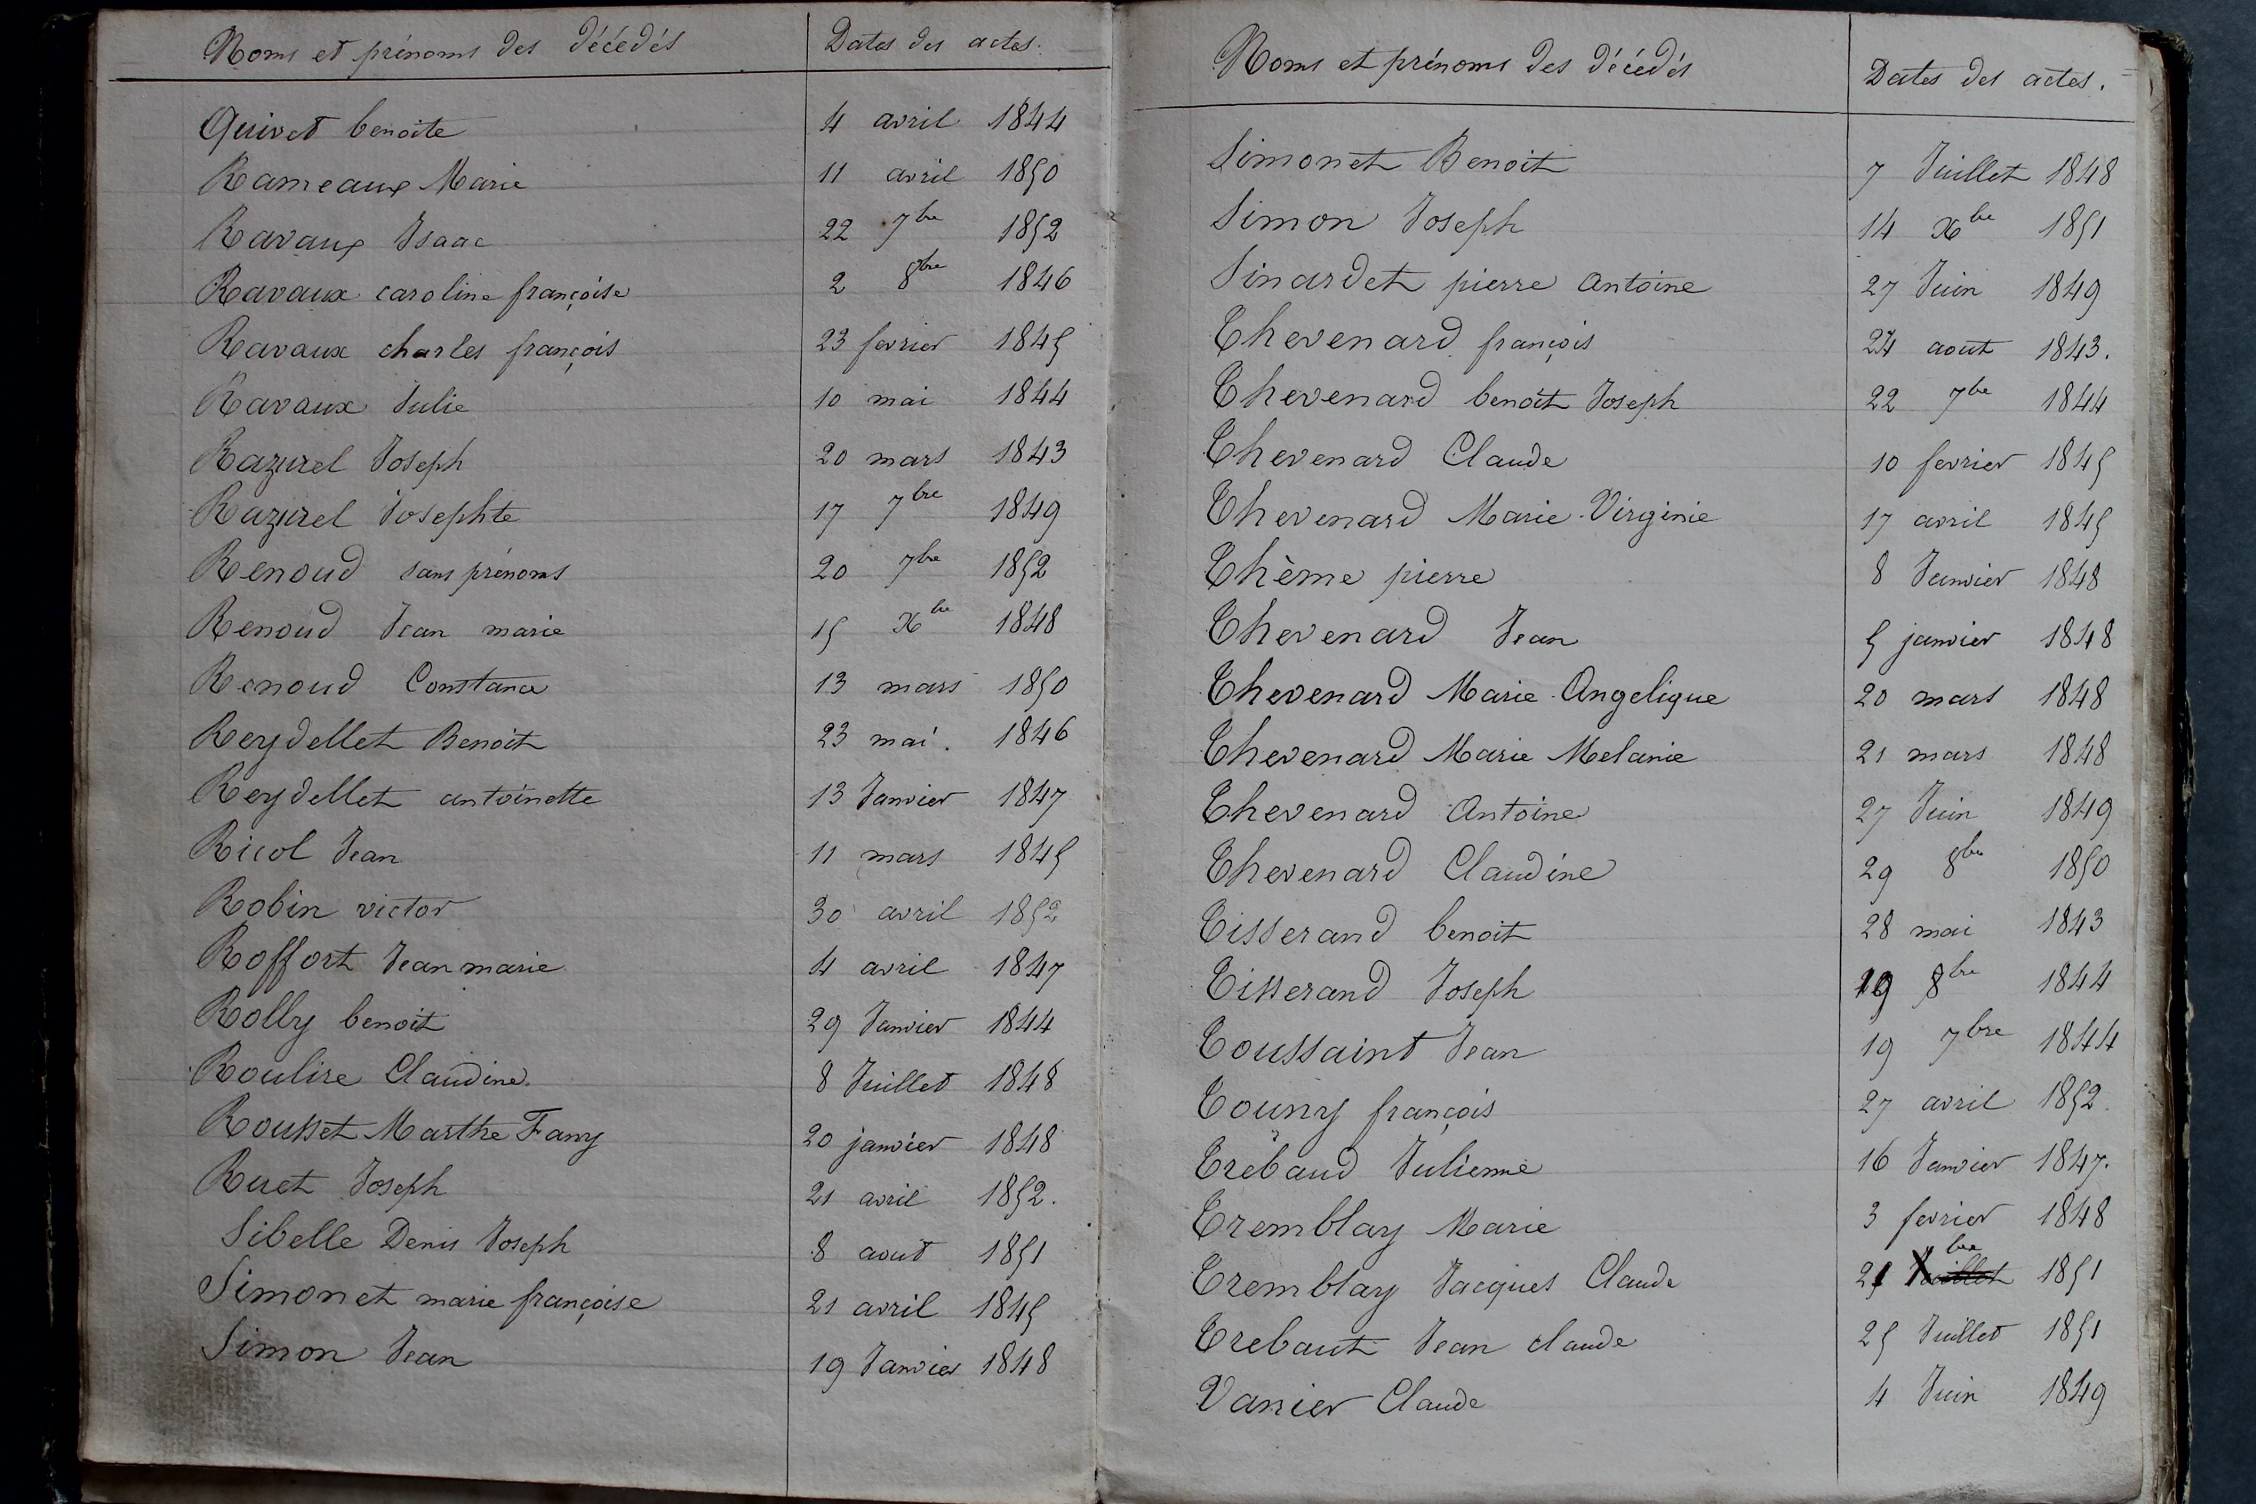 Noms et prénoms des décédés Dates des actes.
Quivet benoite 4 avril 1844
Rameaux Marie 11 avril 1850
Ravaux Isaac 22 7bre 1852
Ravaux caroline françoise 2 8bre 1846
Ravaux charles françois 23 fevrier 1845
Ravaux Julie 10 mai 1844
Razurel Joseph 20 mars 1843
Razurel Josephte 17 7bre 1849
Renoud sans prénoms 20 7bre 1852
Renoud Jean marie 15 Xbre 1848
Renoud Constance 13 mars 1850
Reydellet Benoit 23 mai. 1846
Reydellet antoinette 13 Janvier 1847
Ricol Jean 11 mars 1845
Robin victor 30 avril 1852
Roffort Jean marie 4 avril 1847
Rolly benoit 29 Janvier 1844
Roulire Claudine. 8 Juillet 1848
Rousset Marthe Fany 20 janvier 1848
Ruet Joseph 21 avril 1852.
Sibelle Denis Joseph 8 aout 1851
Simonet marie françoise 21 avril 1845
Simon Jean 19 Janvier 1848
Noms et prénoms des décédés Dates des actes.
Simonet Benoit 7 Juillet 1848
Simon Joseph 14 Xbre 1851
Sinardet pierre Antoine 27 Juin 1849
Thevenard françois 24 aout 1843.
Thevenard benoit Joseph 22 7bre 1844
Thevenard Claude 10 fevrier 1845
Thevenard Marie Virginie 17 avril 1845
Thème pierre 8 Janvier 1848
Thevenard Jean 5 janvier 1848
Thevenard Marie Angelique 20 mars 1848
Thevenard Marie Melanie 21 mars 1848
Thevenard Antoine 27 Juin 1849
Thevenard Claudine 29 8bre 1850
Tisserand benoit 28 mai 1843
Tisserand Joseph 19 8bre 1844
Toussaint Jean 19 7bre 1844
Touny françois 27 avril 1852.
Trebaud Julienne 16 Janvier 1847.
Tremblay Marie 3 fevrier 1848
Tremblay Jacques Claude 21 Xbre 1851
Trebaut Jean claude 25 Juillet 1851
Vanier Claude 4 Juin 1849